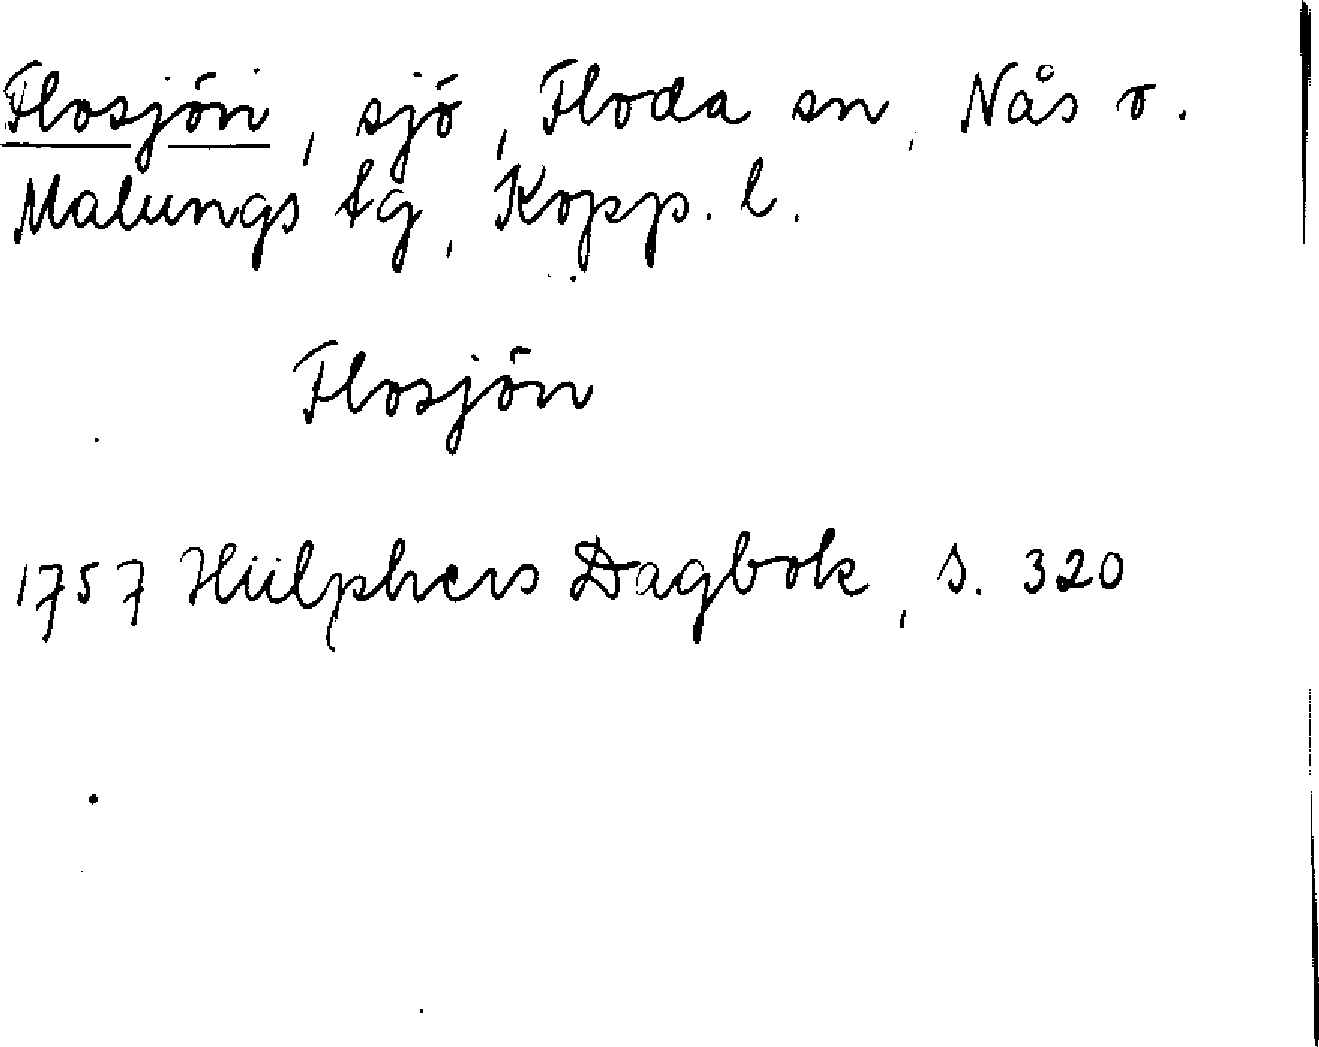 Flosjön, sjö, Floda sn, Nås o.
Malungs tg, Kopp. l.
Flosjön
1757 Hülphers Dagbok, s. 320